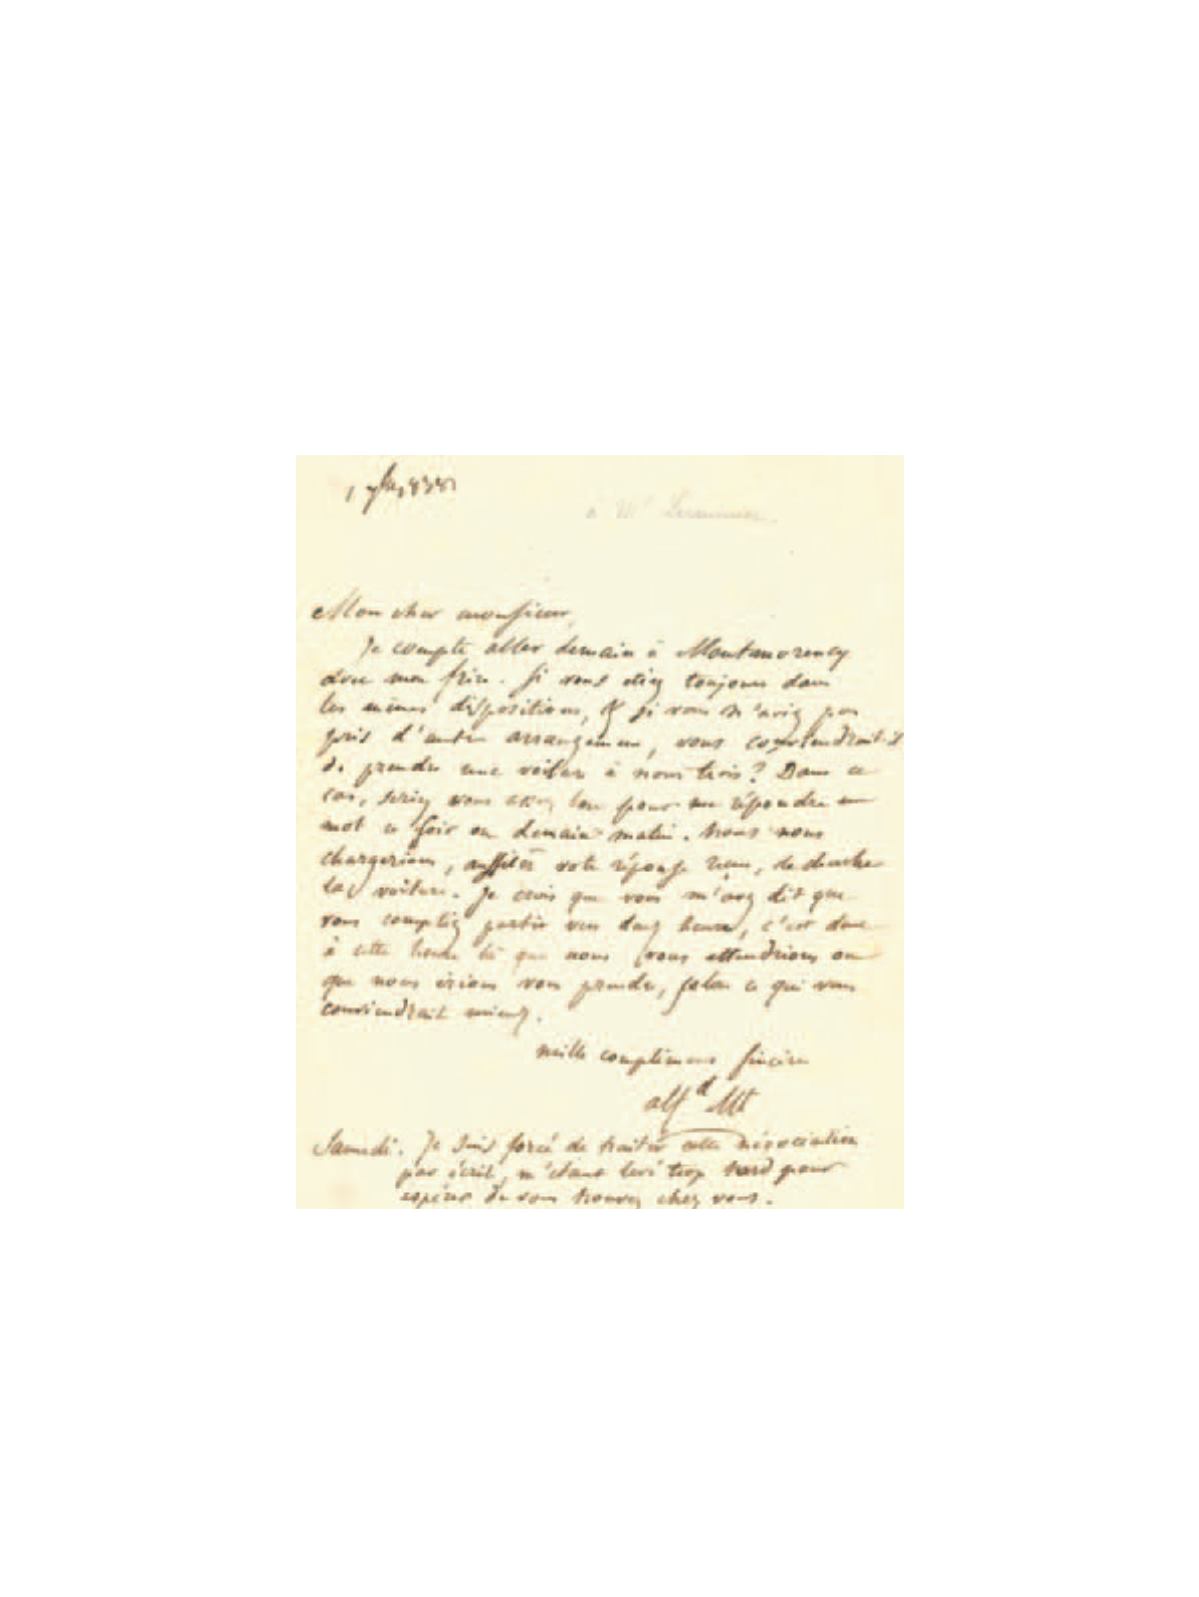 1 7bre 1838
à Mr Lerminier.
Mon cher monsieur,
Je compte aller demain à Montmorency
avec mon frère. Si vous étiez toujours dans
les mêmes dispositions, & si vous n'aviez pas
pris d'autre arrangement, vous conviendrait-il
de prendre une voiture à nous trois? Dans ce
cas, seriez vous assez bon pour me répondre un
mot ce soir ou demain matin. Nous nous
chargerions, aussitôt votre réponse reçue, de chercher
la voiture. Je crois que vous m'avez dit que
vous comptiez partir vers heures, c'est donc
à cette heure là que nous vous attendrions ou
que nous irions vous prendre, selon ce qui vous
conviendrait mieux.
mille complimens sincères
Alfd Mt
Samedi. Je suis forcé de traiter cette négociation
par écrit, m'étant levé trop tard pour
espérer de vous trouver chez vous.